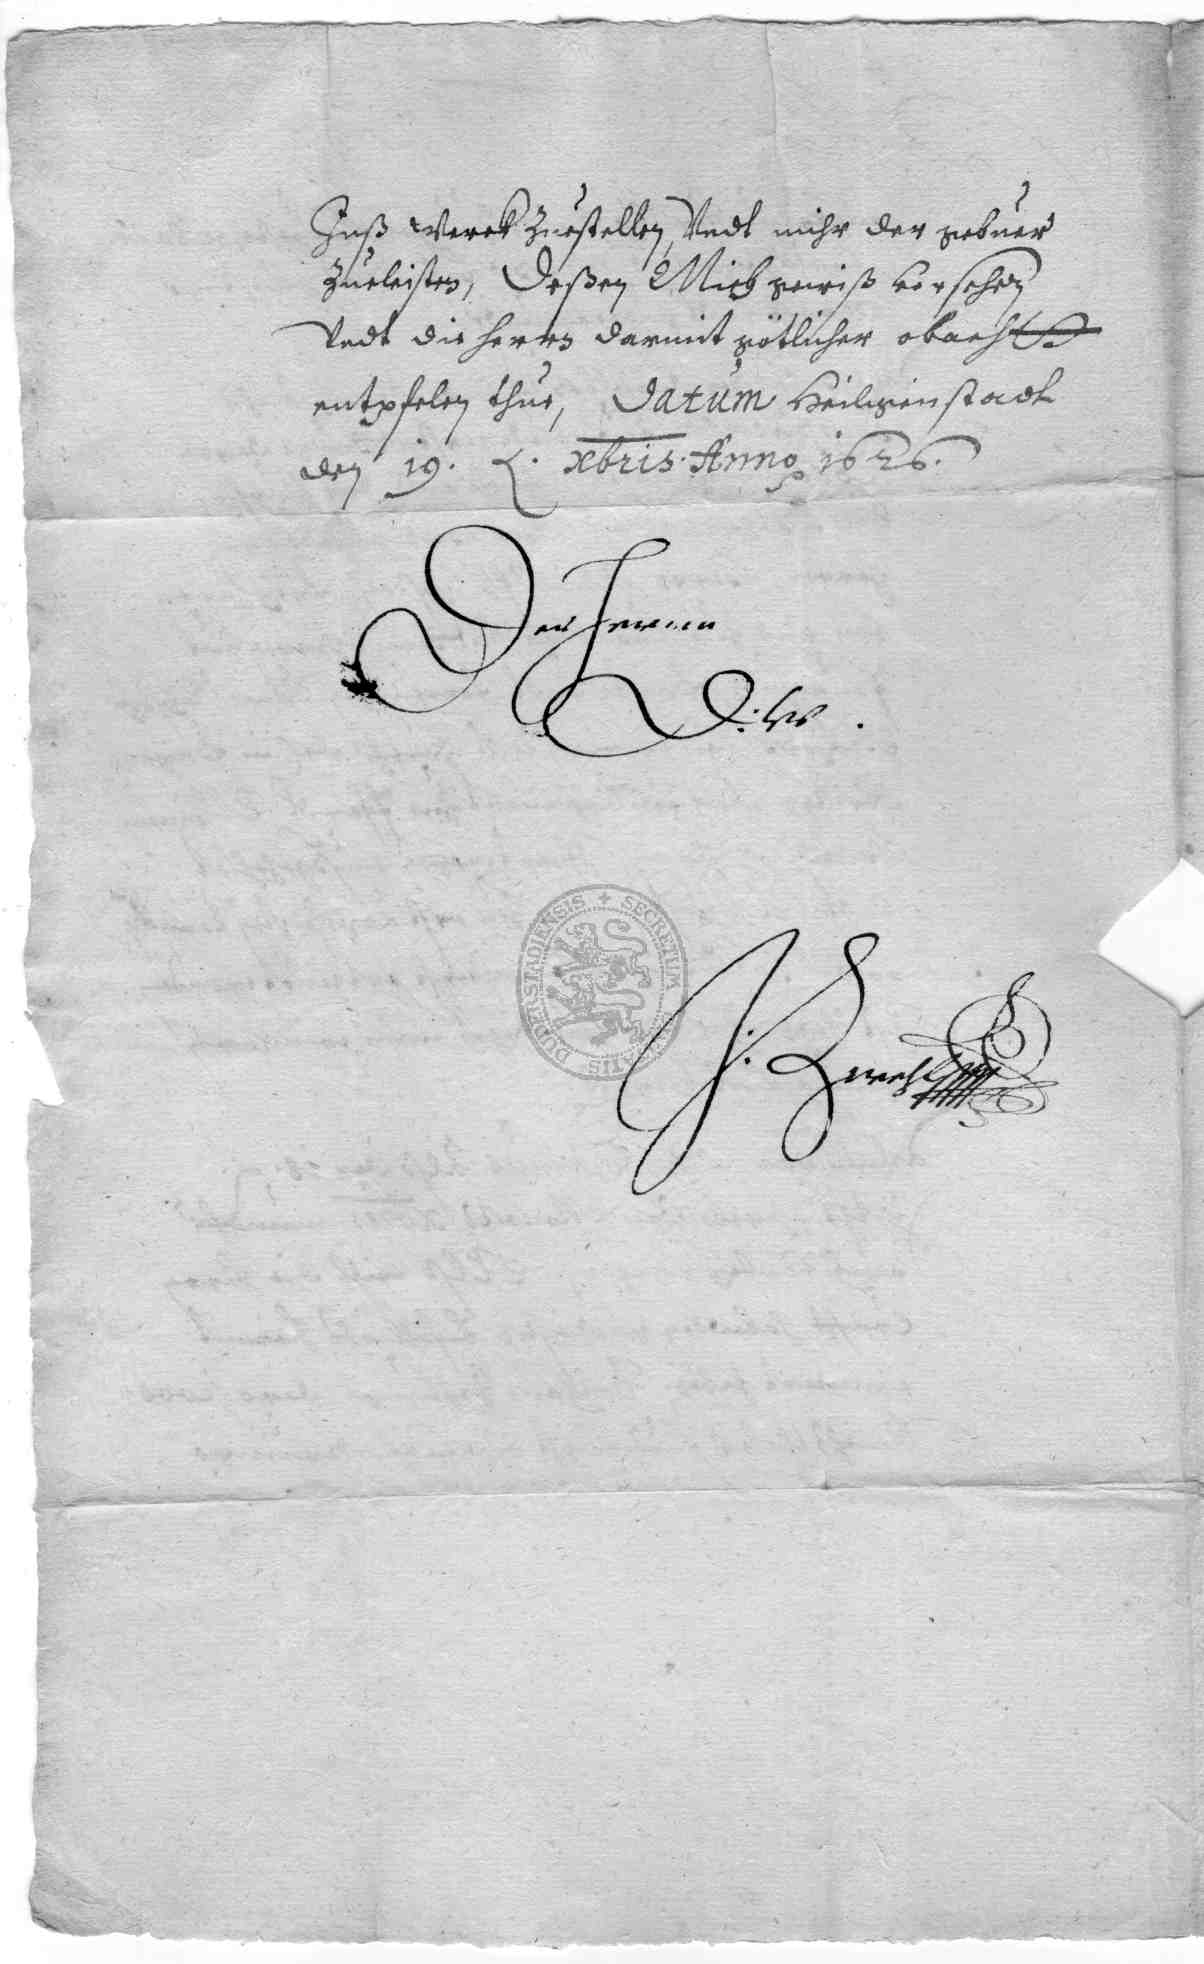 Inß Werck Zuestellen, Undt mihr der gebuer
Zueleisten, Deßen Mich gewiß versehen
Undt die herrn darmit götlicher obacht
entpfelen thue, Datum Heiligenstadt
den 19. Xbris. Anno 1626.
Der Herrnn
D: W.
J.
SECRETUM DUDERSTADIENSIS